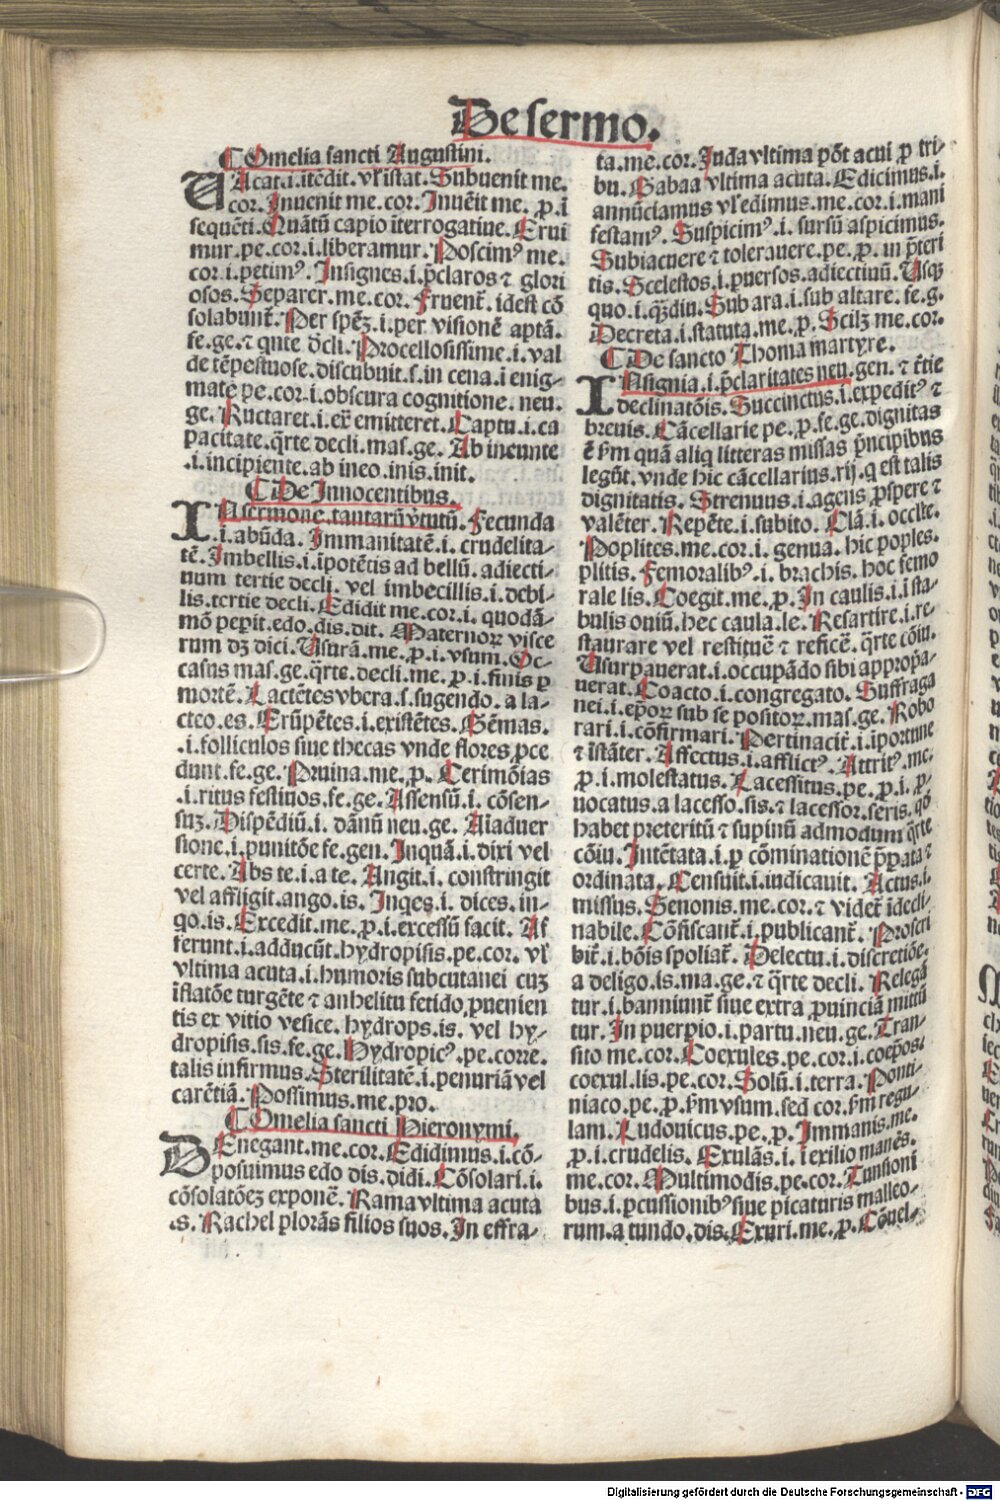 De sermo.
¶ Omelia sancti Augustini.
UAcat.i.itēdit. vl̕ istat. Subuenit me.
cor. Inuenit me. cor. Inuēit me. ꝓ. i
sequēti. Quātū capio īterrogatiue. Erui
mur. pe. cor. i. liberamur. Poscimꝰ me.
cor. i. petimꝰ. Insignes. i. p̄claros ⁊ glori
osos. Separer. me. cor. Fruent̄. idest cō
solabunt̄. Per spēꝫ. i. per visionē aptā.
fe. ge. ⁊ qnte dcli. Procellosissime. i. val
de tēpestuose. discubuit. s. in cena. i enig-
mate pe. cor. i. obscura cognitione. neu.
ge. Ructaret. i. ex̄ emitteret. Captu. i. ca
pacitate. qr̄te decli. mas. ge. Ab ineunte
.i. incipiente. ab ineo. inis. init.
¶ De Innocentibus.
IN sermone. tantarū v̓tutū. Fecunda
.i. abūda. Immanitatē. i. crudelita-
tē. Imbellis. i. ipotētis ad bellū. adiecti-
num tertie decli. vel imbecillis. i. debi-
lis. tertie decli. Edidit me. cor. i. quodā-
mō pep̄it. edo. dis. dit. Maternoꝝ visce
rum dꝫ dici. Usurā. me. ꝓ. i. vsum. Oc-
casus mas. ge. qr̄te. decli. me. ꝓ. i. finis ꝑ
mortē. Lactētes vbera. s. sugendo. a la-
cteo. es. Erūpētes. i. existētes. Gēmas.
.i. folliculos siue thecas vnde flores ꝓce
dunt. fe. ge. Pruina. me. ꝓ. Cerimōias
.i. ritus festiuos. fe. ge. Assensū. i. cōsen-
suꝫ. Dispēdiū. i. dānū neu. ge. Aiaduer
sione. i. punitōe fe. gen. Inquā. i. dixi vel
certe. Abs te. i. a te. Angit. i. constringit
vel affligit. ango. is. Inqes. i. dices. in-
qo. is. Excedit. me. ꝓ. i. excessū facit. Af
ferunt. i. adducūt. hydropisis. pe. cor. vl̕
vltima acuta. i. humoris subcutanei cuꝫ
īflatōe turgēte ⁊ anhelitu fetido ꝓuenien
tis ex vitio vesice. hydrops. is. vel hy-
dropisis. sis. fe. ge. Hydropicꝰ. pe. corre.
talis infirmus. Sterilitatē. i. penuriā vel
carētiā. Possimus. me. pro.
¶ Omelia sancti Hieronymi.
DEnegant. me. cor. Edidimus. i. cō-
posuimus edo dis. didi. Cōsolari. i.
cōsolatōeꝫ exponē. Rama vltima acuta
.s. Rachel plorās filios suos. In effra-
ta. me. cor. Juda vltima pōt acui ꝓ tri-
bu. Sabaa vltima acuta. Edicimus. i.
annūciamus vl̕ edimus. me. cor. i. mani
festamꝰ. Suspicimꝰ. i. sursū aspicimus.
Subiacuere ⁊ tolerauere. pe. ꝓ. in p̄teri
tis. Scelestos. i. ꝑuersos. adiectiuū. Usqꝫ
quo. i. qꝫdiu. Sub ara. i. sub altare. fe. g.
Decreta. i. statuta. me. ꝓ. Scilꝫ me. cor.
¶ De sancto Thoma martyre.
INsignia. i. p̄claritates neu. gen. ⁊ t̄tie
declinatōis. Succinctus. i. expeditꝰ ⁊
breuis. Cācellarie pe. ꝓ. fe. ge. dignitas
ē ẜm quā aliq litteras missas p̄ncipibus
legūt. vnde hic cācellarius. rij. q est talis
dignitatis. Strenuus. i. agens ꝓspere ⁊
valēter. Repēte. i. subito. Clā. i. occlte.
Poplites. me. cor. i. genua. hic poples.
plitis. Femoralibꝰ. i. brachis. hoc femo
rale lis. Coegit. me. ꝓ. In caulis. i. i sta-
bulis ouiū. hec caula. le. Resartire. i. re-
staurare vel restituē ⁊ reficē. qr̄te cōiu.
Usurpauerat. i. occupādo sibi appropa-
uerat. Coacto. i. congregato. Suffraga
nei. i. ep̄oꝝ sub se positoꝝ. mas. ge. Robo
rari. i. cōfirmari. Pertinacit̄. i. iportune
⁊ istāter. Affectus. i. afflictꝰ. Attritꝰ. me.
ꝓ. i. molestatus. Lacessitus. pe. ꝓ. i. ꝓ-
uocatus. a lacesso. sis. ⁊ lacessor. seris. qō
habet preteritū ⁊ supinū admodum qr̄te
cōiu. Intētata. i. ꝑ cōminationē p̄ꝑata ⁊
ordinata. Censuit. i. iudicauit. Actus. i.
missus. Senonis. me. cor. ⁊ videt̄ īdecli
nabile. Cōfiscant̄. i. publicant̄. Proscri
bit̄. i. bōis spoliat̄. Delectu. i. discretiōe.
a deligo. is. ma. ge. ⁊ qr̄te decli. Relegā
tur. i. banniunt̄ siue extra ꝓuinciā mittū
tur. In puerpio. i. partu. neu. ge. Tran-
sito me. cor. Coexules. pe. cor. i. coep̄osi
coexul. lis. pe. cor. Solū. i. terra. Ponti-
niaco. pe. ꝓ. ẜm vsum. sed cor. ẜm regu-
lam. Ludouicus. pe. ꝓ. Immanis. me.
ꝓ. i. crudelis. Exulās. i. i exilio manēs.
me. cor. Multimodis. pe. cor. Tunsioni
bus. i. ꝑcussionibꝰ siue picaturis malleo-
rum. a tundo. dis. Exuri. me. ꝓ. Cōuel-
Digitalisierung gefördert durch die Deutsche Forschungsgemeinschaft - DFG